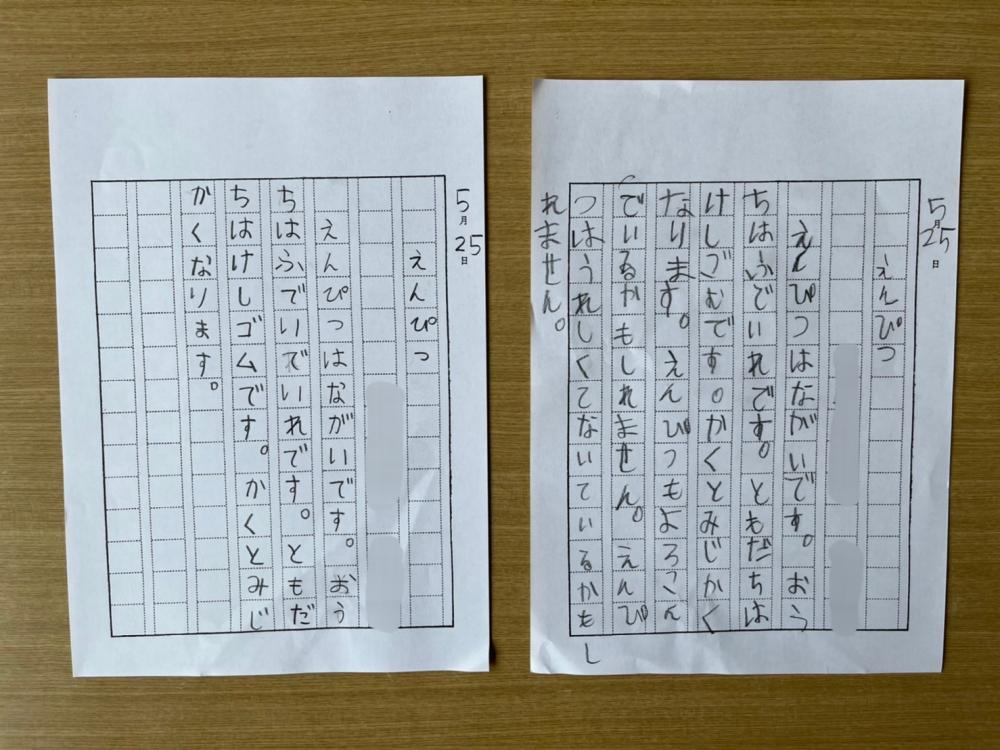 5月25日
えんぴつ
えんぴつはながいです。おう
ちはふでいでいれです。ともだ
ちはけしゴムです。かくとみじ
がくなります。
5月25日
えんぴつ
えんぴつはながいです。おう
ちはふでいれです。ともだちは
けしごむです。かくとみじかく
なります。えんぴつもよろこん
でいるかもしれません。えんぴ
つはうれしくてないているかもし
れません。